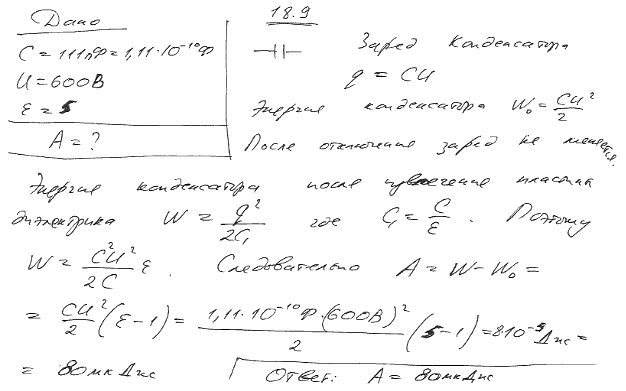 18.9
Дано
C = 111пФ = 1,11·10⁻¹⁰ Ф
U = 600В
ε = 5
A = ?
Заряд конденсатора
q = CU
Энергия конденсатора W₀ = CU²/2
После отключения заряд не меняется.
Энергия конденсатора после извлечения пластин
диэлектрика W = q²/2C₁ где C₁ = C/ε . Поэтому
W = C²U²/2C ε . Следовательно A = W − W₀ =
= CU²/2 (ε−1) = 1,11·10⁻¹⁰Ф·(600В)²/2 (5−1) = 8·10⁻⁵ Дж =
= 80мкДж
Ответ: A = 80мкДж